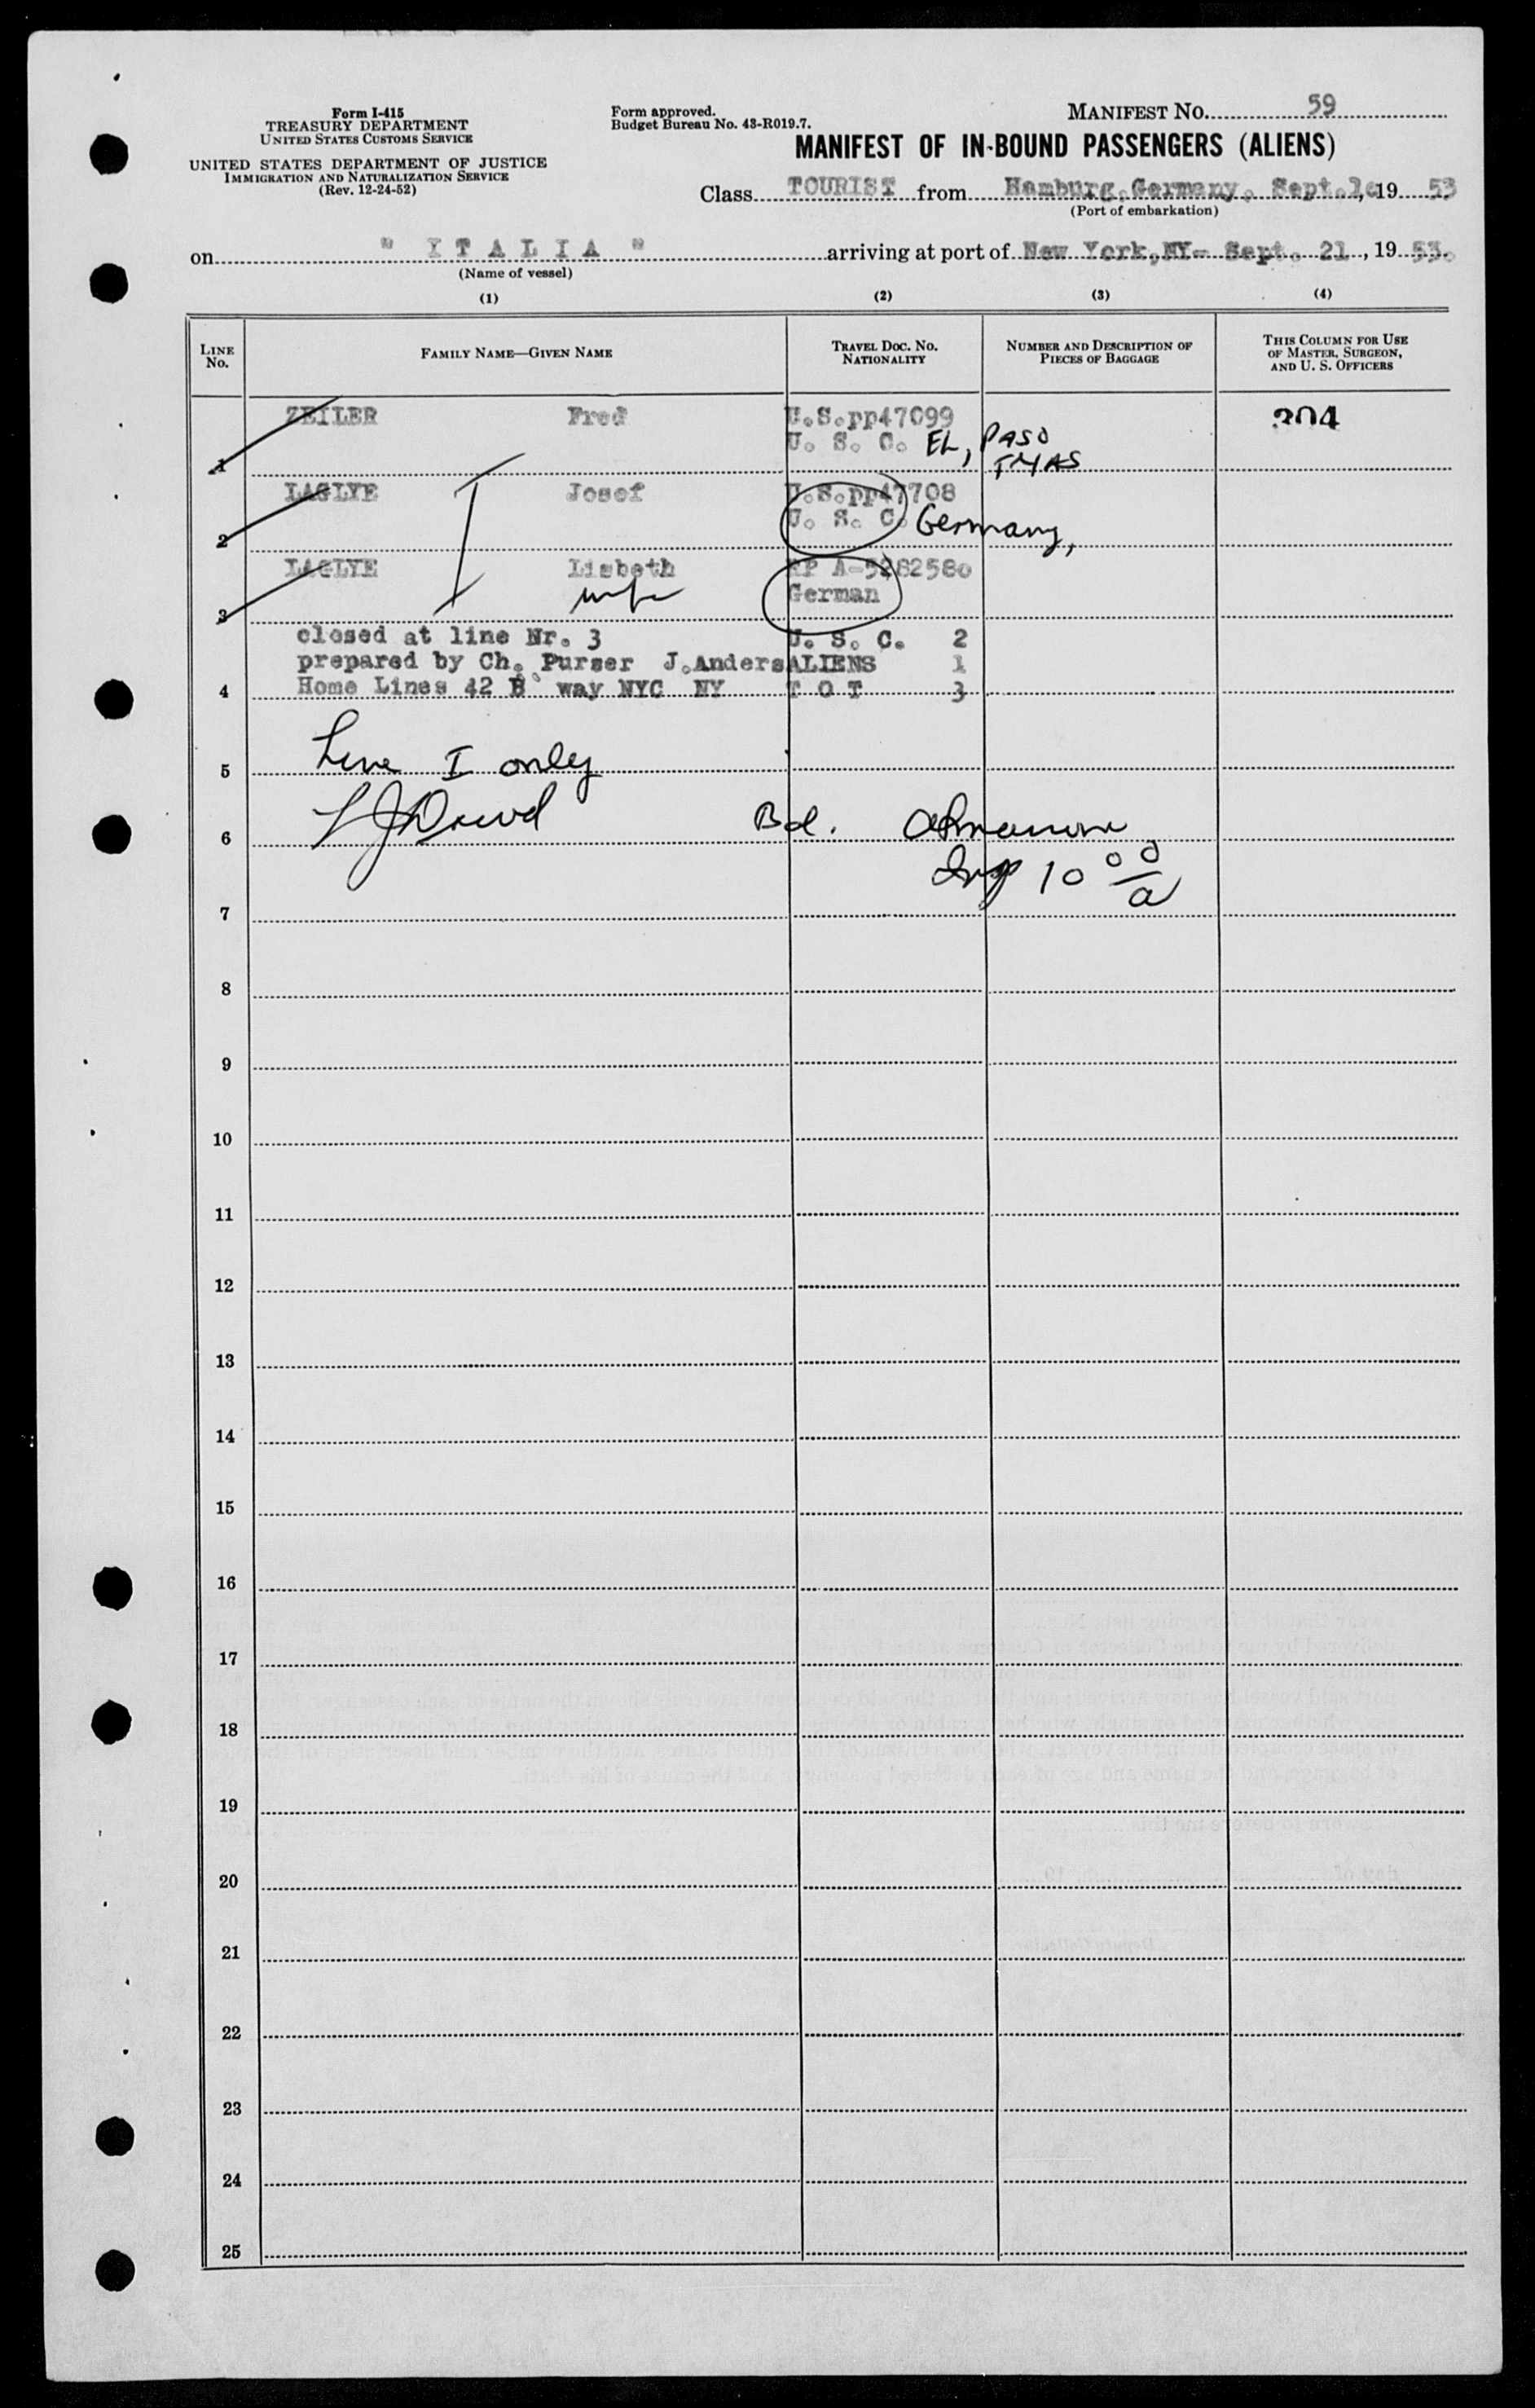 Form I-415
TREASURY DEPARTMENT
UNITED STATES CUSTOMS SERVICE
UNITED STATES DEPARTMENT OF JUSTICE
IMMIGRATION AND NATURALIZATION SERVICE
(Rev. 12-24-52)
Form approved.
Budget Bureau No. 43-R019.7.
MANIFEST NO. 59
MANIFEST OF IN-BOUND PASSENGERS (ALIENS)
Class TOURIST from Hamburg, Germany, Sept. 1c, 19 53
(Port of embarkation)
on " I T A L I A " arriving at port of New York, NY- Sept. 21, 19 53.
(Name of vessel)
(1) (2) (3) (4)
LINE NO. FAMILY NAME—GIVEN NAME TRAVEL DOC. NO. NATIONALITY NUMBER AND DESCRIPTION OF PIECES OF BAGGAGE THIS COLUMN FOR USE OF MASTER, SURGEON, AND U. S. OFFICERS
ZEILER Fred U.S.pp47099 304
1 U. S. C. EL, PASO
LAGLYE Josef U.S.pp47708
2 U. S. C. Germany,
LAGLYE Lisbeth RP A-5282580
3 wife German
closed at line Nr. 3 U. S. C. 2
prepared by Ch. Purser J.Anders ALIENS 1
4 Home Lines 42 B'way NYC NY T O T 3
5 Line I only
6 Bd.
10 00/a
7
8
9
10
11
12
13
14
15
16
17
18
19
20
21
22
23
24
25